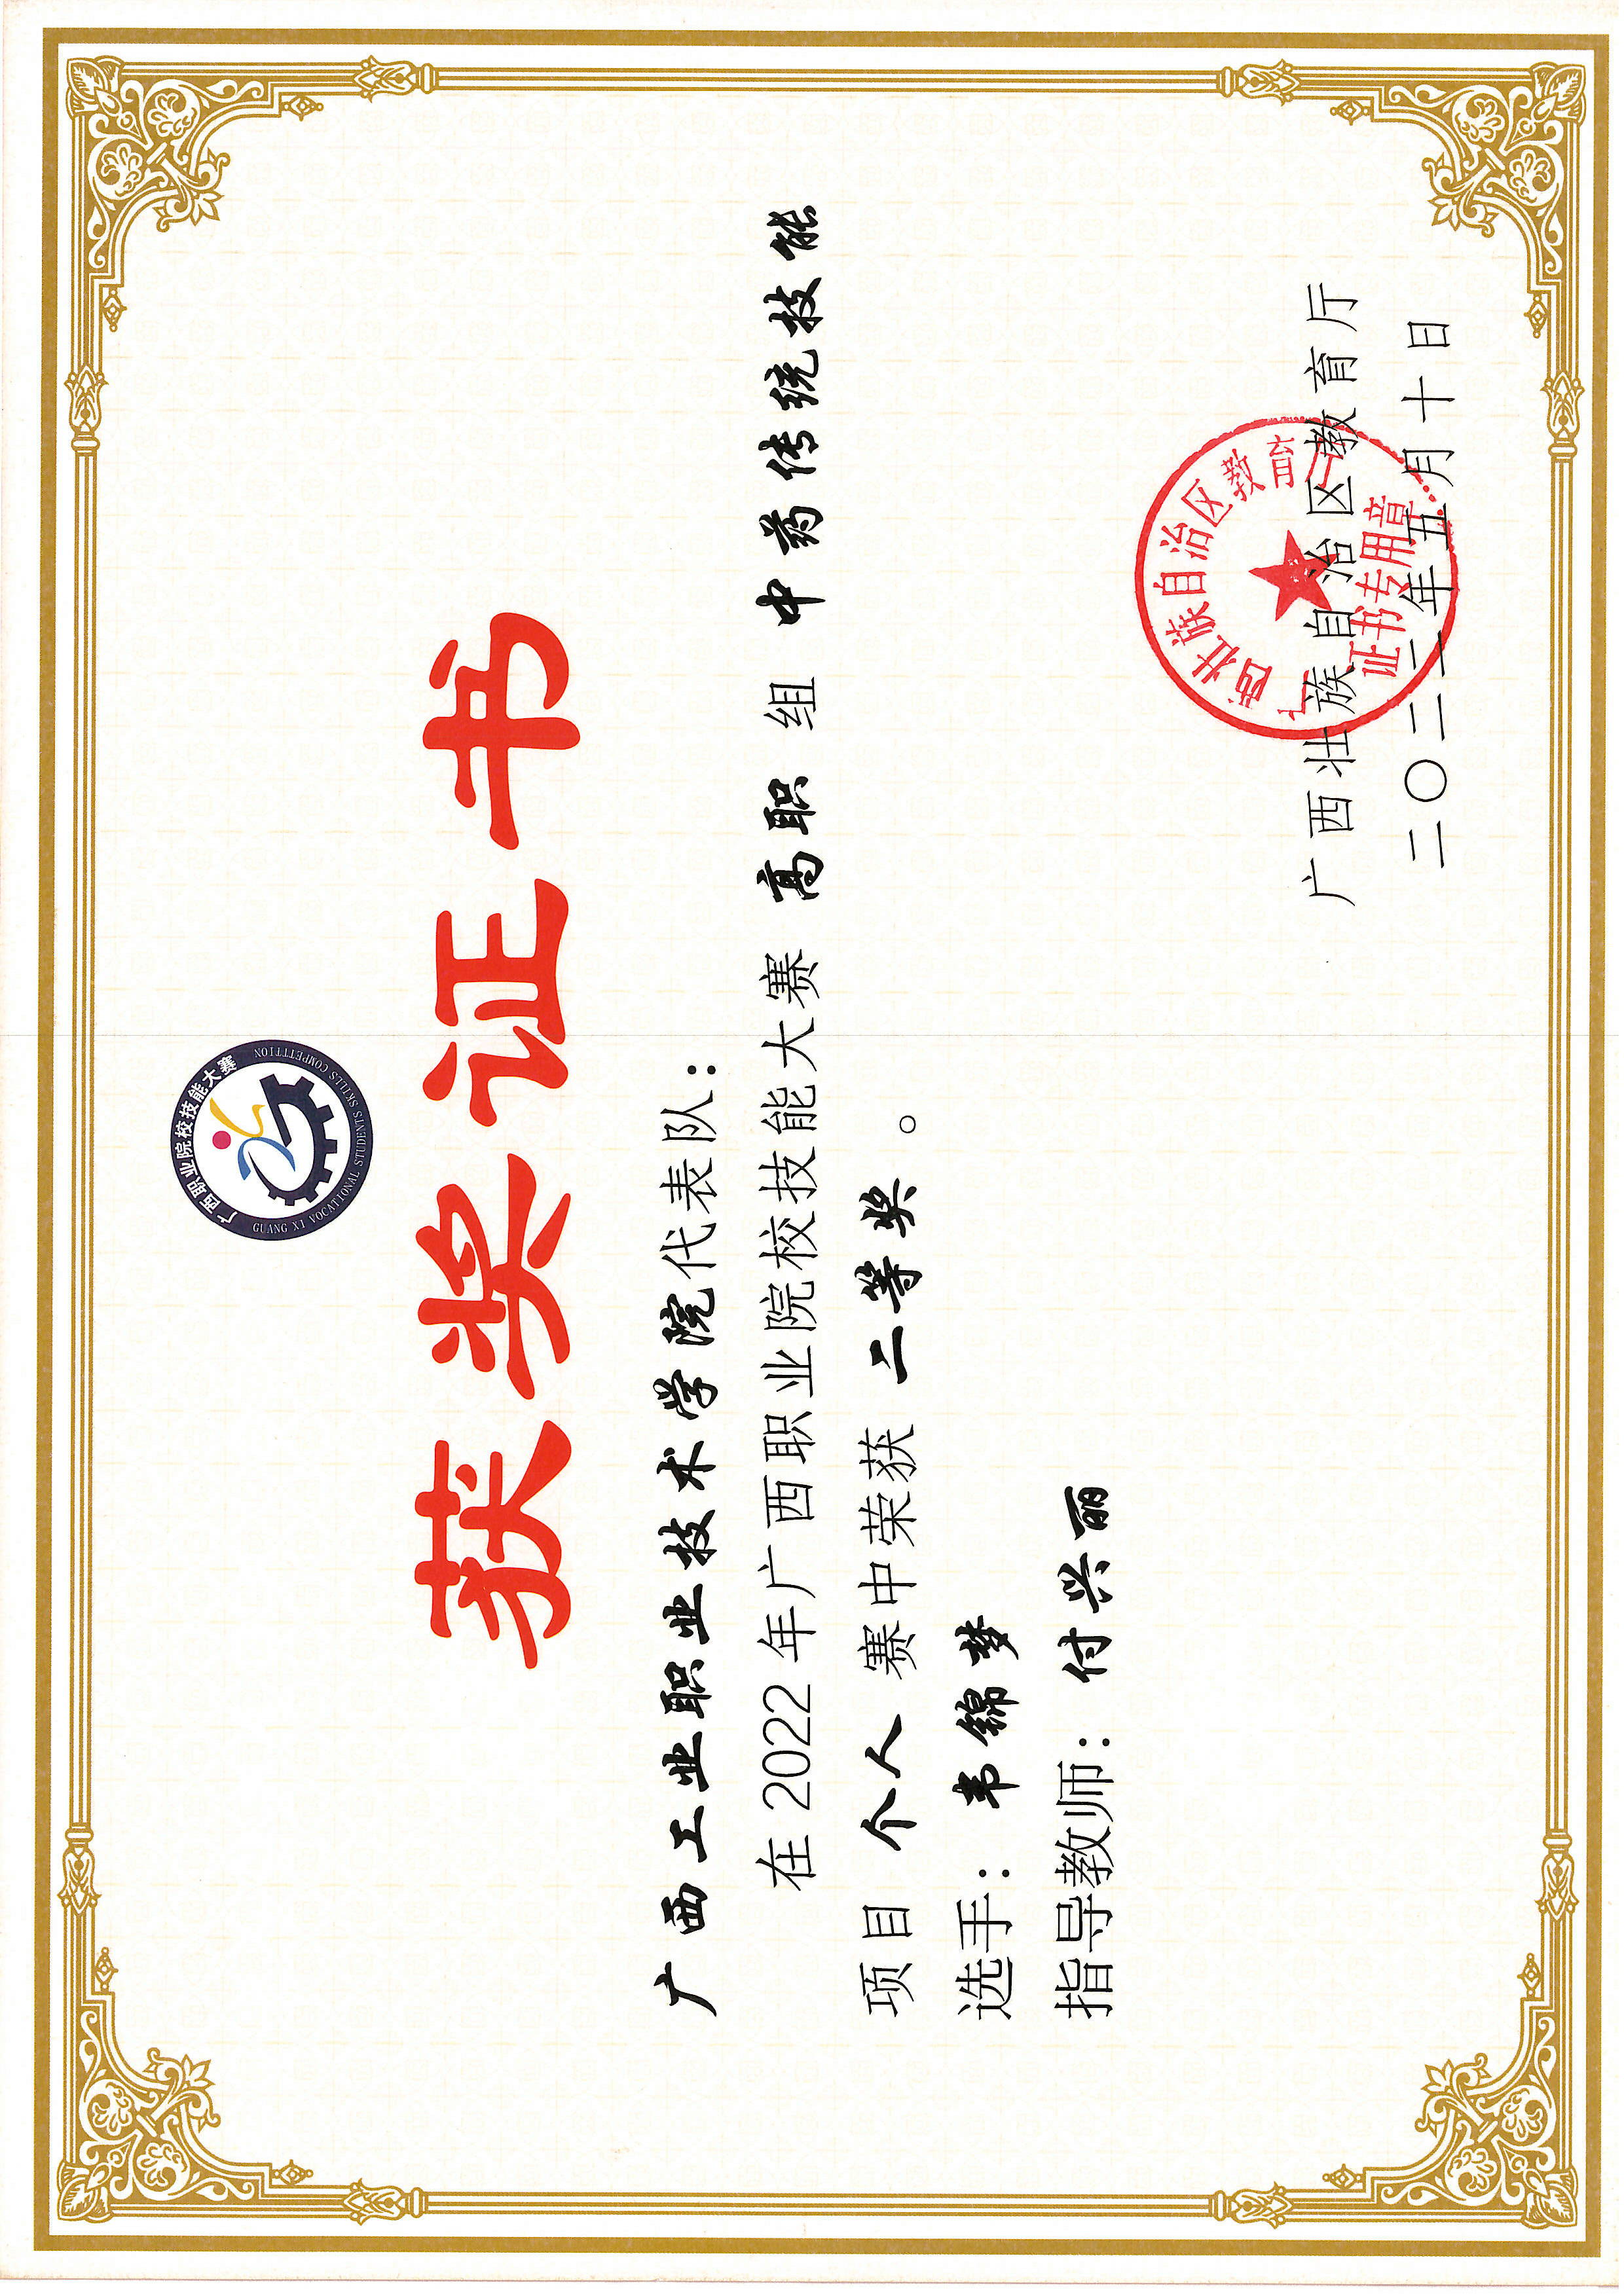 广西职业院校技能大赛
GUANG XI VOCATIONAL STUDENTS SKILLS COMPETITION
获奖证书
广西工业职业技术学院代表队：
在 2022 年广西职业院校技能大赛 高职 组 中药传统技能
项目 个人 赛中荣获 二等奖 。
选手：韦锦梦
指导教师：付兴丽
广西壮族自治区教育厅
二〇二二年五月十日
广西壮族自治区教育厅
证书专用章